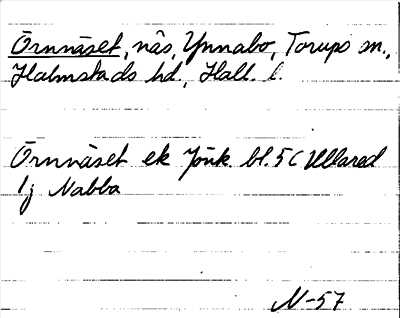 Örnnäset, näs, Ynnabo, Torups sn.,
Halmstads hd., Hall. l.
Örnnäset ek Jönk. bl. 5 C Ullared
1j Nabba
N-57